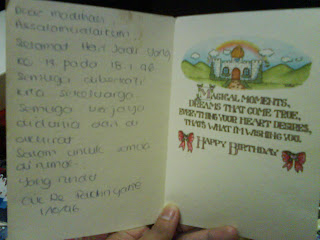 Assalamualaikum
Selamat Hari Jadi yang
ke 19 pada 18.1.96
Semoga diberkati
kita sekeluarga.
Semoga berjaya
didunia dan di
akhirat
Salam untuk semua
di rumah.
Yang rindu
1/6/96
MAGICAL MOMENTS,
DREAMS THAT COME TRUE,
EVERYTHING YOUR HEART DESIRES,
THAT'S WHAT I'M WISHING YOU.
HAPPY BIRTHDAY